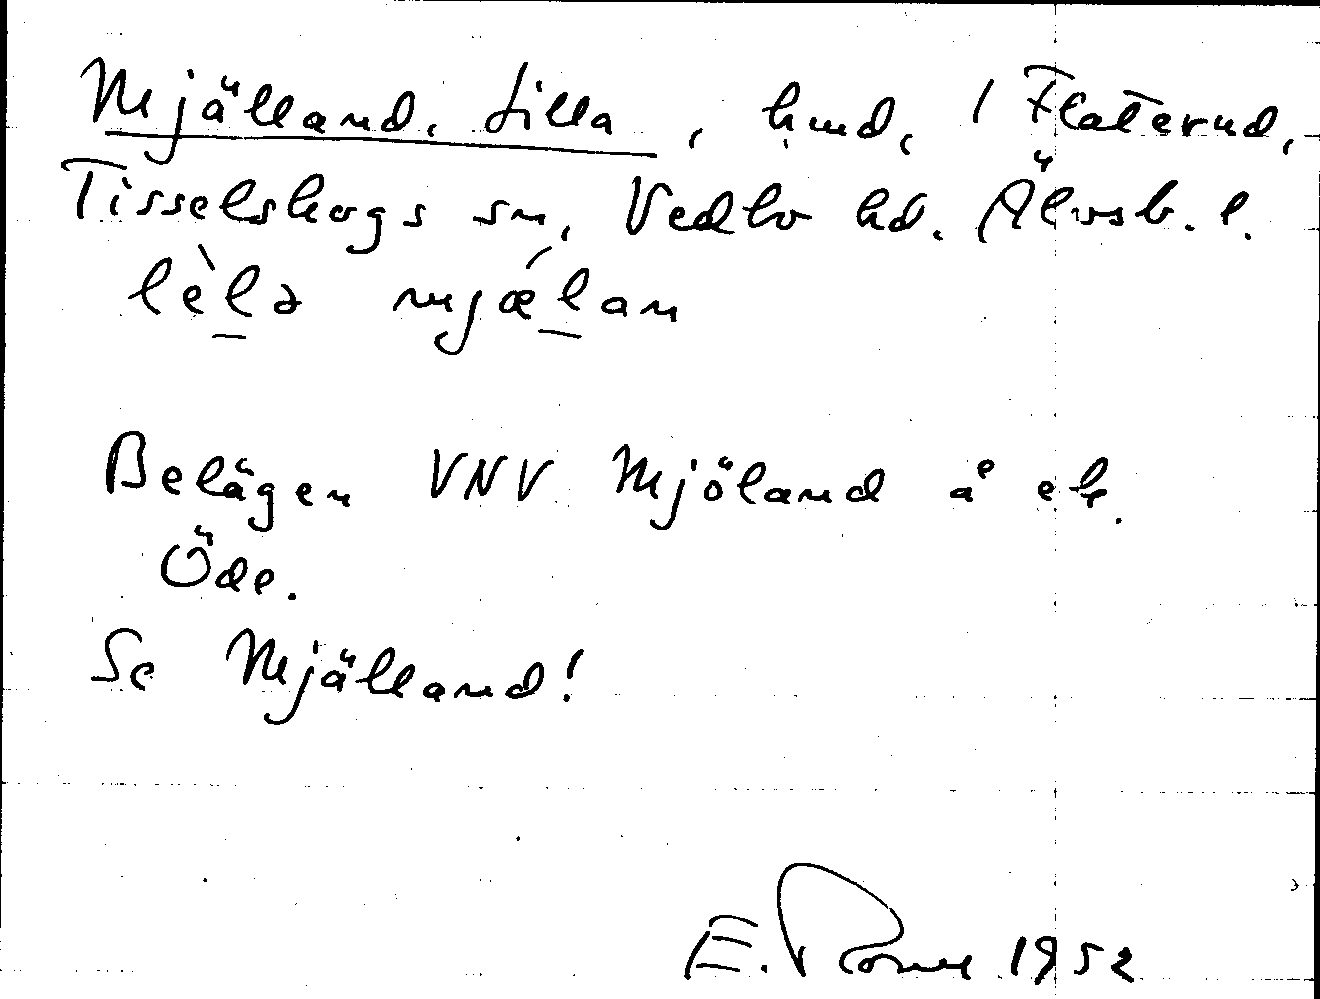 Mjälland, Lilla, hmd, 1 Flaterud,
Tisselskogs sn, Vedbo hd. Älvsb. l.
lèlə mjǽlan
Belägen VNV Mjöland å ek.
Öde.
Se Mjälland!
E. 1952